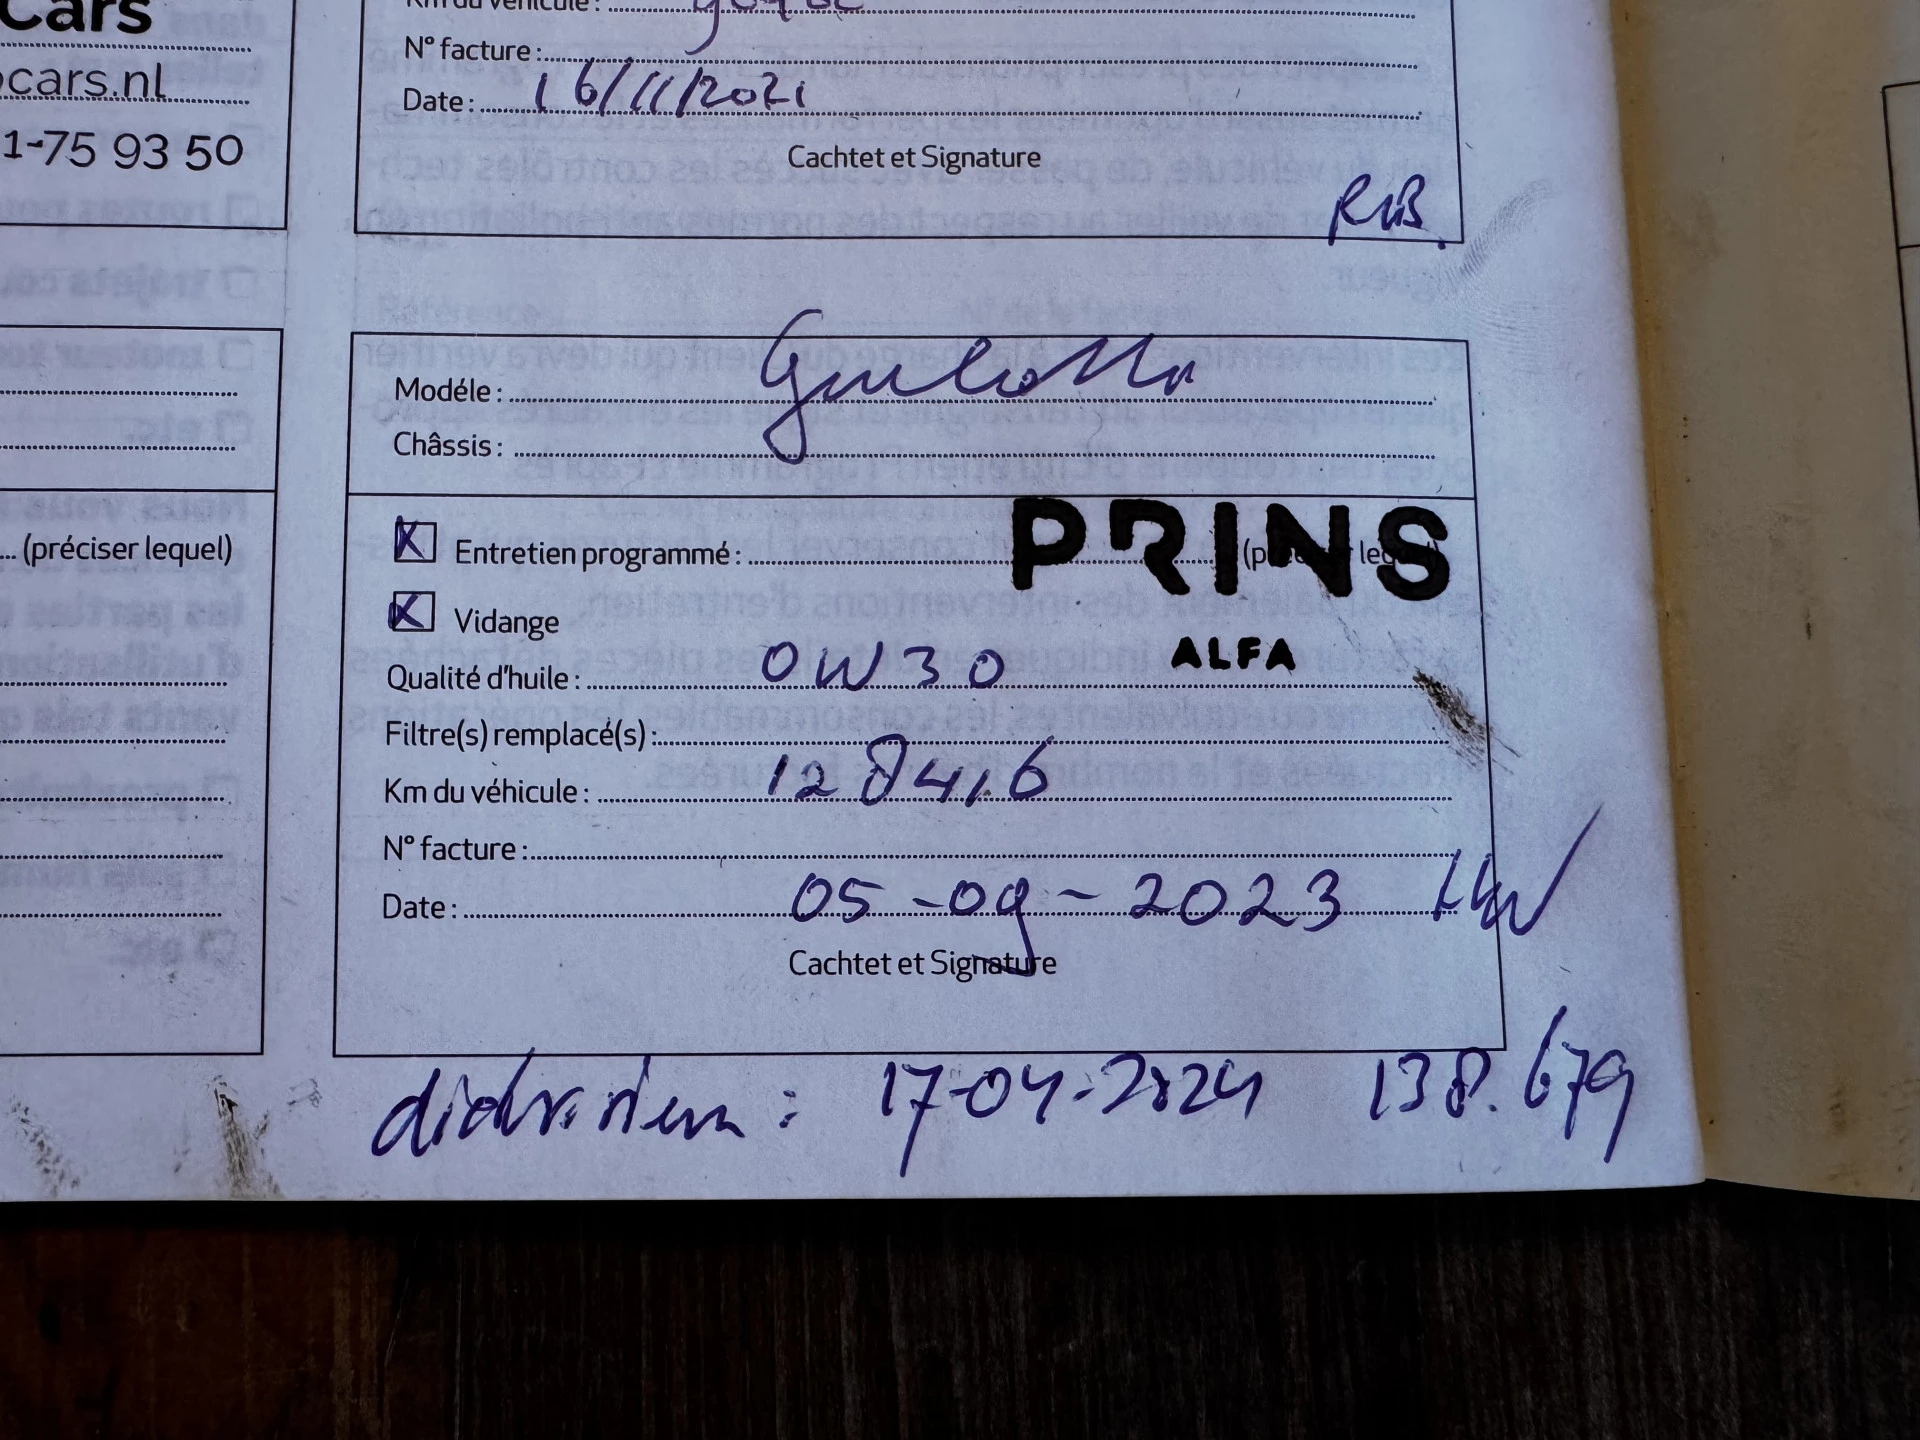 Cars
ocars.nl
1-75 93 50
... (préciser lequel)
Km du véhicule :
N° facture :
Date : 16/11/2021
Cachtet et Signature
RvB.
Modéle : Giulietta
Châssis :
X Entretien programmé : PRINS
X Vidange
ALFA
Qualité d'huile : 0W30
Filtre(s) remplacé(s) :
Km du véhicule : 128416
N° facture :
Date : 05-09-2023
Cachtet et Signature
distr. riem : 17-04-2024 138.679